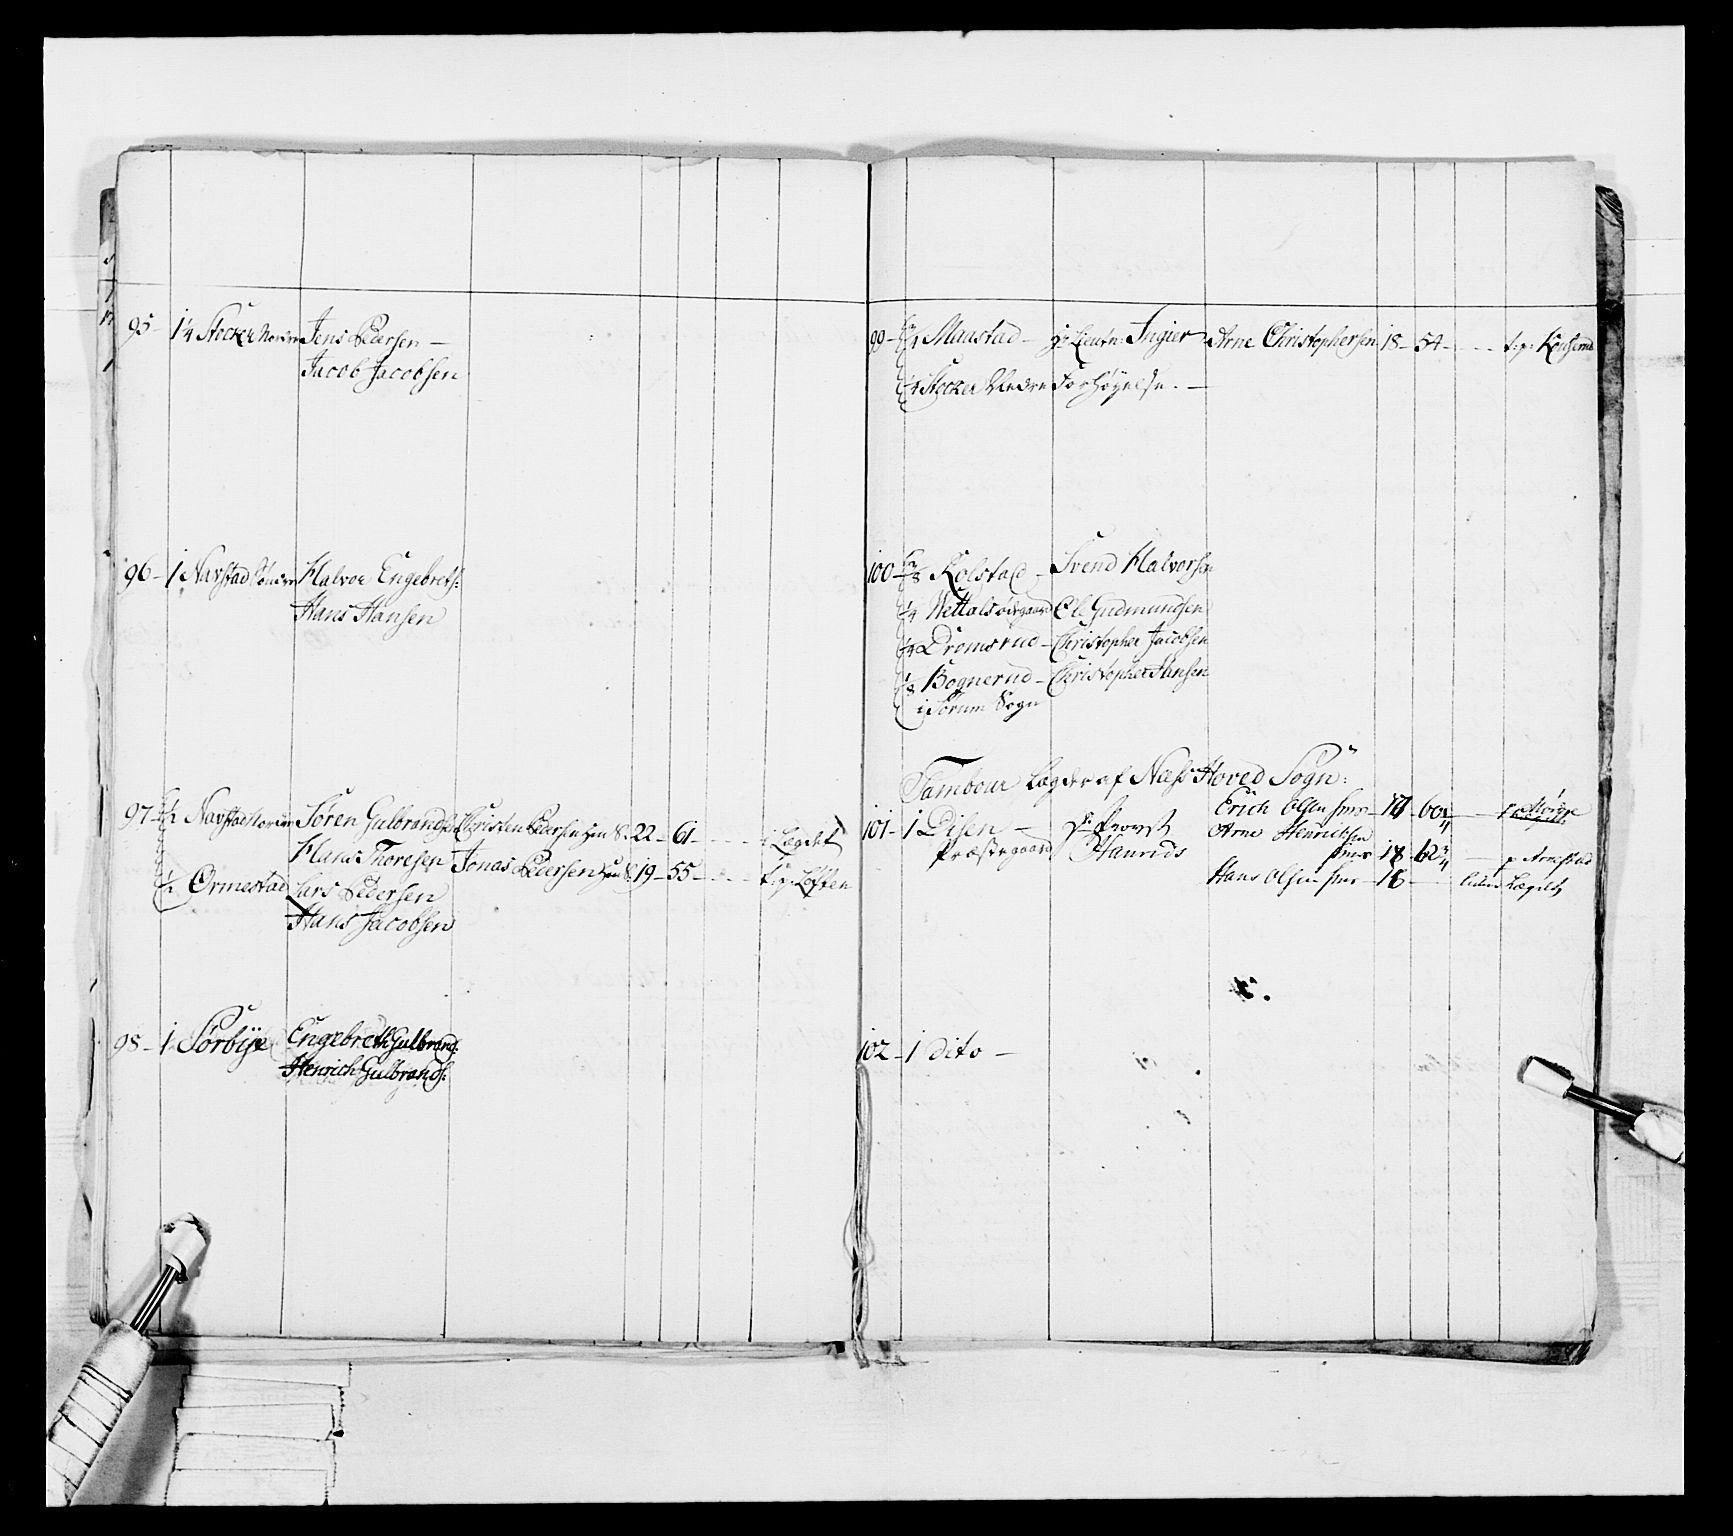 95 – 1¼ Stocker Nordre Jens Pedersen –
Jacob Jacobsen
96 – 1 Navstad Søndre Halvor Engebrets:
Hans Hansen
97 – ½ Navstad Nordre Søren Gulbrandsen Christen Pedersen 22 – 61 – i Lægdet
Hans Thoresen Jonas Pedersen 19 – 55 – t: p: Løften
½ Ormestad Lars Pedersen
Hans Jacobsen
98 – 1 Sørbye Engebreth Gulbrand:
Henrich Gulbrands:
99 – Maustad – Hr Lieutn: Ingier Arne Christophersen 18 – 54 – t: p:
¼ Stocker Nedre Forhøyelse. –
100 – Kolstad – Svend Halvorsen
¼ Nettalsødegaard Ole Gudmundsen
¼ Dromsrud – Christopher Jacobsen
⅛ Bognerud – Christopher Hansen
i Sørum Sogn
Tambour Lægder af Næss Hoved Sogn:
101 – 1 Disen – Hr Provst Erich Olsen
Præstegaard Arne Henrichsen
18 62¾ – p Arnestad
Hans Olsen 18 – uden Lægdet
102 – 1 dito –